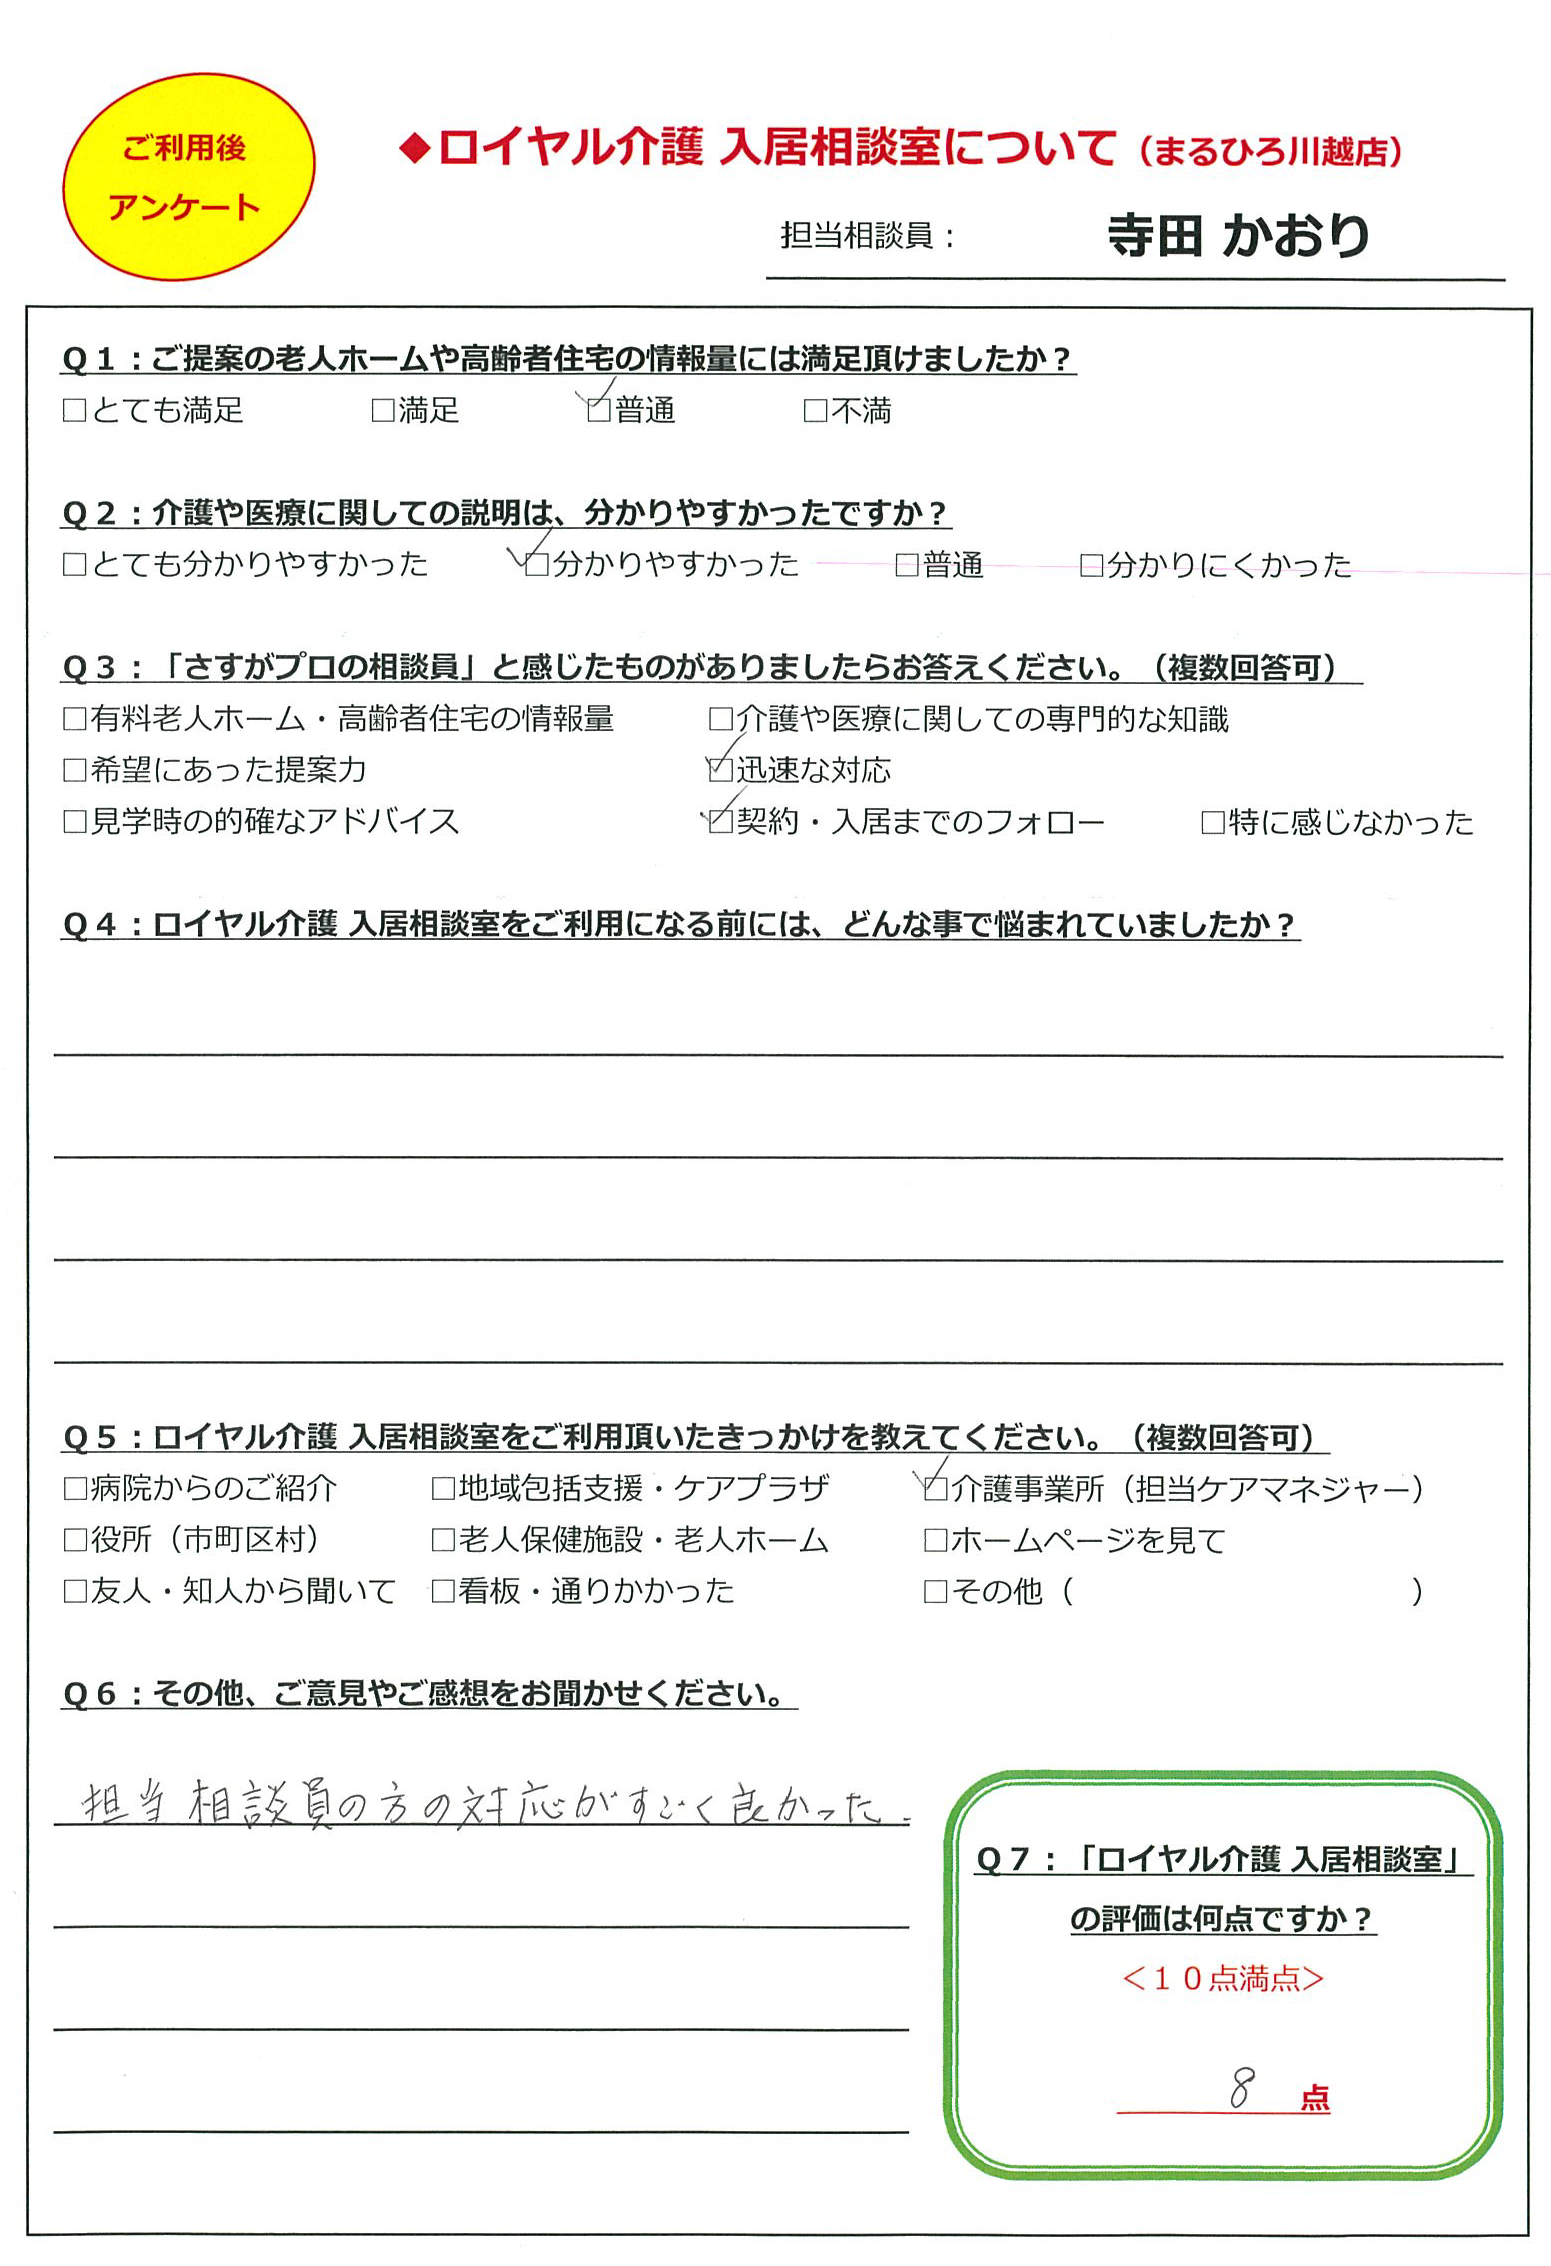 ご利用後
アンケート
◆ロイヤル介護 入居相談室について（まるひろ川越店）
担当相談員： 寺田 かおり
Ｑ１：ご提案の老人ホームや高齢者住宅の情報量には満足頂けましたか？
□とても満足 □満足 ☑普通 □不満
Ｑ２：介護や医療に関しての説明は、分かりやすかったですか？
□とても分かりやすかった ☑分かりやすかった □普通 □分かりにくかった
Ｑ３：「さすがプロの相談員」と感じたものがありましたらお答えください。（複数回答可）
□有料老人ホーム・高齢者住宅の情報量 □介護や医療に関しての専門的な知識
□希望にあった提案力 ☑迅速な対応
□見学時の的確なアドバイス ☑契約・入居までのフォロー □特に感じなかった
Ｑ４：ロイヤル介護 入居相談室をご利用になる前には、どんな事で悩まれていましたか？
Ｑ５：ロイヤル介護 入居相談室をご利用頂いたきっかけを教えてください。（複数回答可）
□病院からのご紹介 □地域包括支援・ケアプラザ ☑介護事業所（担当ケアマネジャー）
□役所（市町区村） □老人保健施設・老人ホーム □ホームページを見て
□友人・知人から聞いて □看板・通りかかった □その他（ ）
Ｑ６：その他、ご意見やご感想をお聞かせください。
担当相談員の方の対応がすごく良かった.
Ｑ７：「ロイヤル介護 入居相談室」
の評価は何点ですか？
＜１０点満点＞
8 点